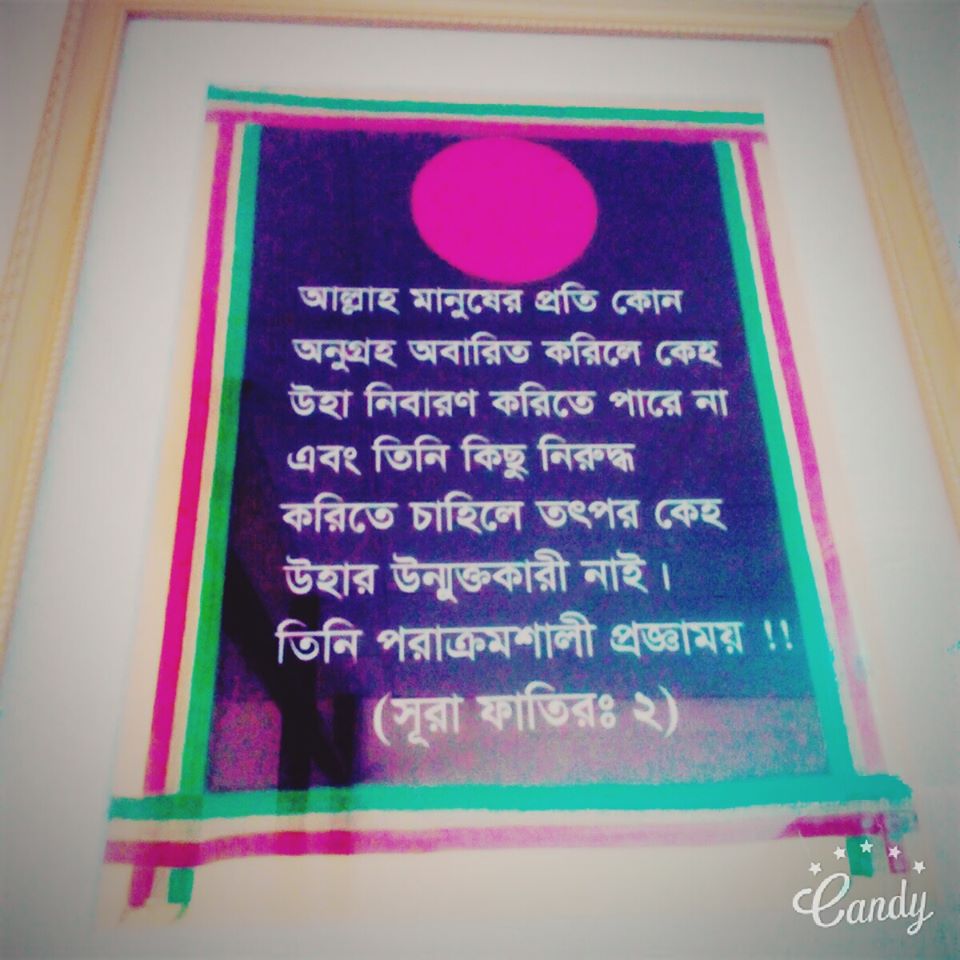 আল্লাহ মানুষের প্রতি কোন
অনুগ্রহ অবারিত করিলে কেহ
উহা নিবারণ করিতে পারে না
এবং তিনি কিছু নিরুদ্ধ
করিতে চাহিলে তৎপর কেহ
উহার উন্মুক্তকারী নাই।
তিনি পরাক্রমশালী প্রজ্ঞাময় !!
(সূরা ফাতিরঃ ২)
Candy